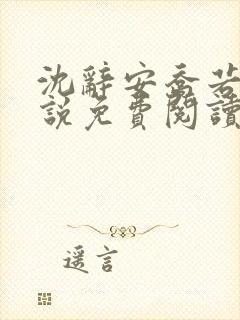 沈辭安喬若
說免費閱讀
遥言